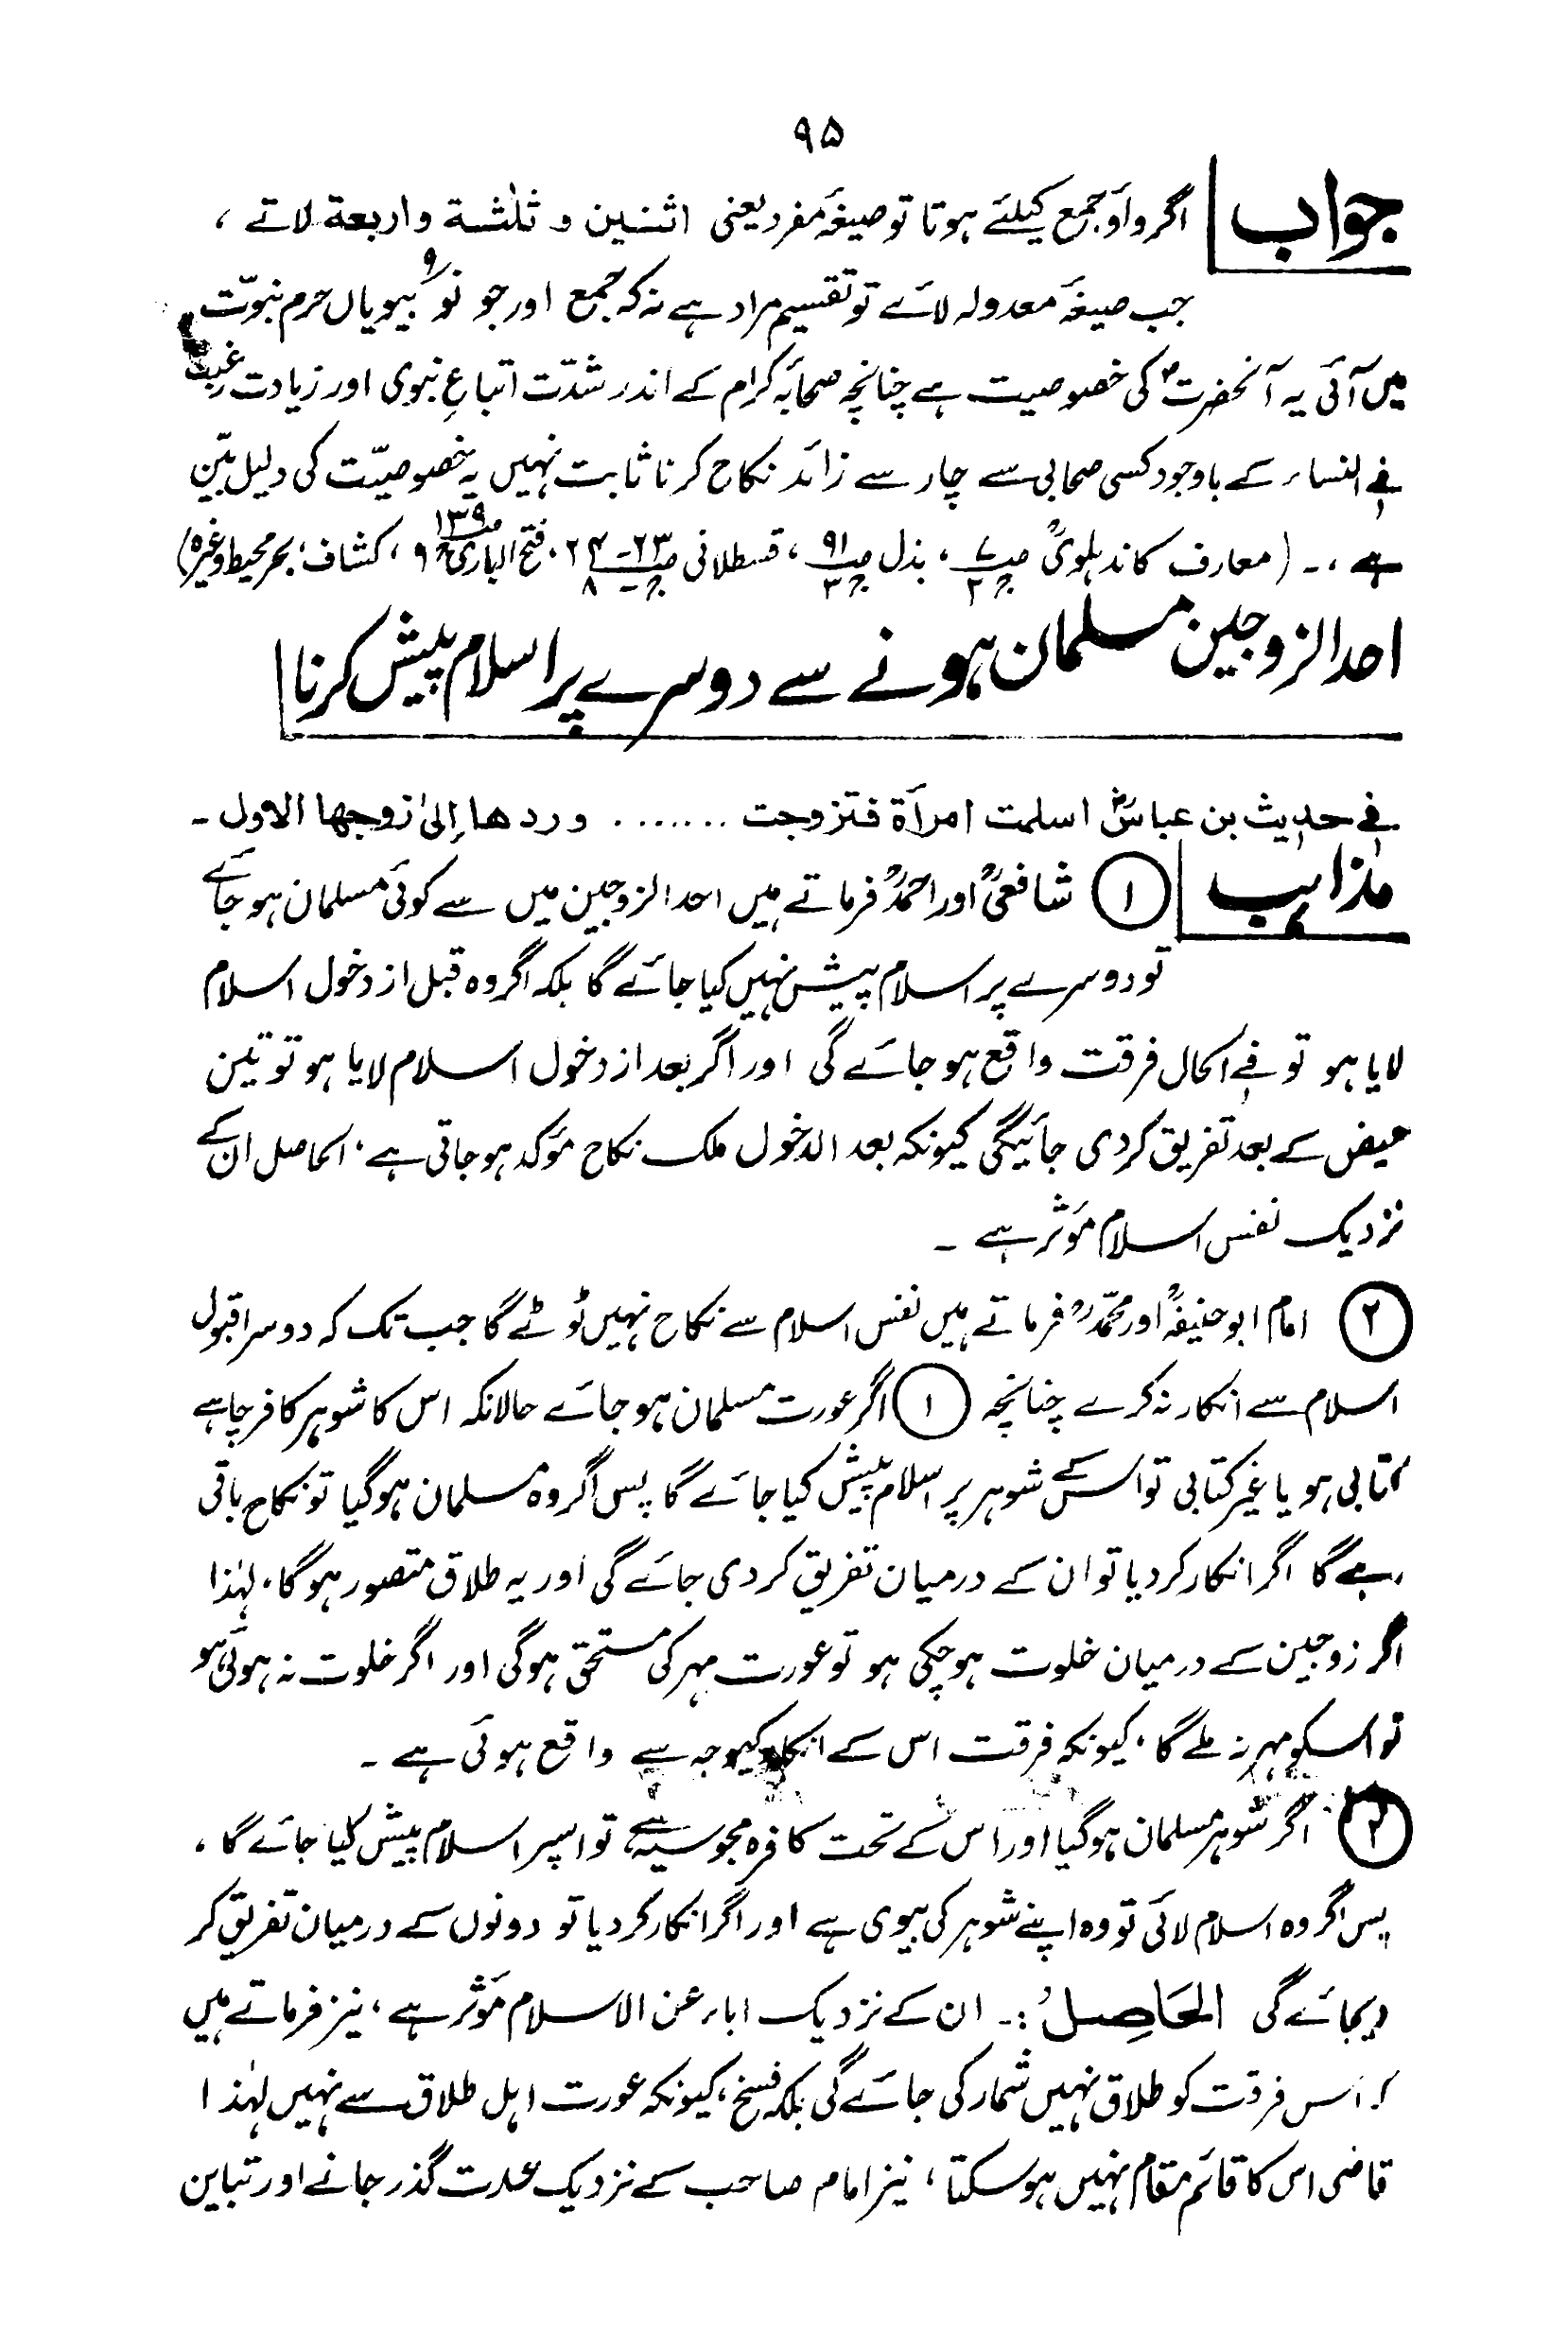 ۹۵
جواب اگر واؤ جمع کیلئے ہوتا تو صیغۂ مفرد یعنی اثنین و ثلٰثة واربعة لاتے ،
جب صیغۂ معدولہ لائے تو تقسیم مراد ہے نہ کہ جمع اور جو نو ۹ بیویاں حرم نبوّت
میں آئی یہ آنحضرت ؐ کی خصوصیت ہے چنانچہ صحابۂ کرام کے اندر شدّت اتباعِ نبوی اور زیادت رغبت
فے النساء کے باوجود کسی صحابی سے چار سے زائد نکاح کرنا ثابت نہیں یہ خصوصیّت کی دلیل بیّن
ہے ،۔ (معارف کاندہلویؒ ، بذل ص۹۱ ج۳ ، قسطلانی ص۲۳-۲۴ ج۸ ، فتح الباری ص۱۳۹ ج۹ ، کشاف ، بحر محیط وغیرہ)
احد الزوجین مسلمان ہونے سے دوسرے پر اسلام پیش کرنا
فے حدیث بن عباسؓ اسلمت امرأة فتزوجت ....... وردھا إلیٰ زوجھا الاول ۔
مذاہب ① شافعیؒ اور احمدؒ فرماتے ہیں احد الزوجین میں سے کوئی مسلمان ہو جائے
تو دوسرے پر اسلام پیش نہیں کیا جائے گا بلکہ اگر وہ قبل از دخول اسلام
لایا ہو تو فے الحال فرقت واقع ہو جائے گی اور اگر بعد از دخول اسلام لایا ہو تو تین
حیض کے بعد تفریق کردی جائیگی کیونکہ بعد الدخول ملک نکاح مؤکد ہو جاتی ہے ، الحاصل ان کے
نزدیک نفس اسلام مؤثر ہے ۔
② امام ابو حنیفہؒ اور محمّدؒ فرماتے ہیں نفس اسلام سے نکاح نہیں ٹوٹے گا جب تک کہ دوسرا قبول
اسلام سے انکار نہ کرے چنانچہ ① اگر عورت مسلمان ہو جائے حالانکہ اس کا شوہر کافر چاہے
کتابی ہو یا غیر کتابی تو اس کے شوہر پر اسلام پیش کیا جائے گا پس اگر وہ مسلمان ہوگیا تو نکاح باقی
رہے گا اگر انکار کر دیا تو ان کے درمیان تفریق کر دی جائے گی اور یہ طلاق متصور ہوگا ، لہٰذا
اگر زوجین کے درمیان خلوت ہوچکی ہو تو عورت مہر کی مستحق ہوگی اور اگر خلوت نہ ہوئی ہو
تو اسکو مہر نہ ملے گا ، کیونکہ فرقت اس کے انکار کیوجہ سے واقع ہوئی ہے ۔
② اگر شوہر مسلمان ہوگیا اور اس کے تحت کافرہ مجوسیہ ہے تو اسپر اسلام پیش کیا جائے گا ،
پس اگر وہ اسلام لائی تو وہ اپنے شوہر کی بیوی ہے اور اگر انکار کر دیا تو دونوں کے درمیان تفریق کر
دیجائے گی الحَاصِلُ :۔ ان کے نزدیک اباء عن الاسلام مؤثر ہے ، نیز فرماتے ہیں
کہ اس فرقت کو طلاق نہیں شمار کی جائے گی بلکہ فسخ ، کیونکہ عورت اہل طلاق سے نہیں لہٰذا
قاضی اس کا قائم مقام نہیں ہوسکتا ، نیز امام صاحب کے نزدیک عدت گذر جانے اور تباین